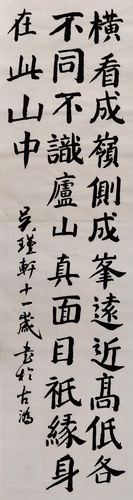 橫看成嶺側成峯遠近高低各
不同不識廬山真面目祇緣身
在此山中
吳瑾軒十一歲書於古鴻